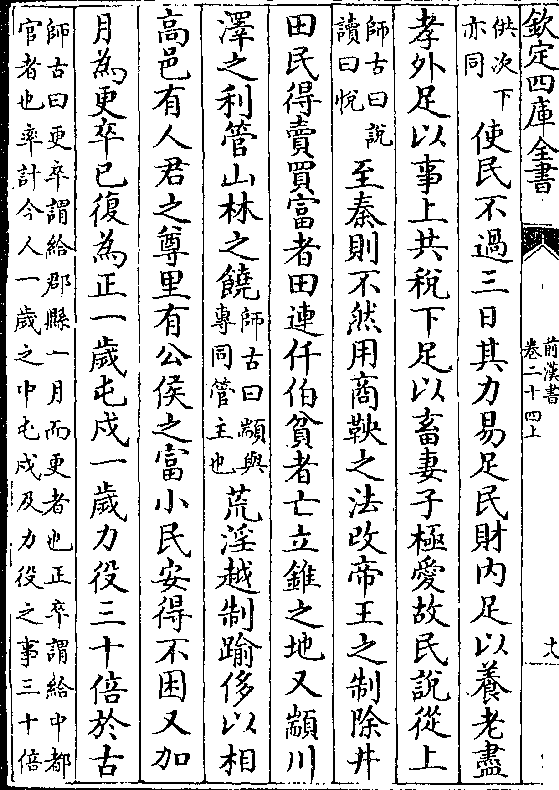 欽定四庫全書
前漢書
卷二十四上
供次下
亦同
使民不過三日其力易足民財内足以養老盡
孝外足以事上共稅下足以畜妻子極愛故民說從上
師古曰說
讀曰悅
至秦則不然用商鞅之法改帝王之制除井
田民得賣買富者田連仟伯貧者亡立錐之地又顓川
澤之利管山林之饒
師古曰顓與
專同管主也
荒淫越制踰侈以相
高邑有人君之尊里有公侯之富小民安得不困又加
月為更卒已復為正一歲屯戍一歲力役三十倍於古
師古曰更卒謂給郡縣一月而更者也正卒謂給中都
官者也率計今人一歲之中屯戍及力役之事三十倍